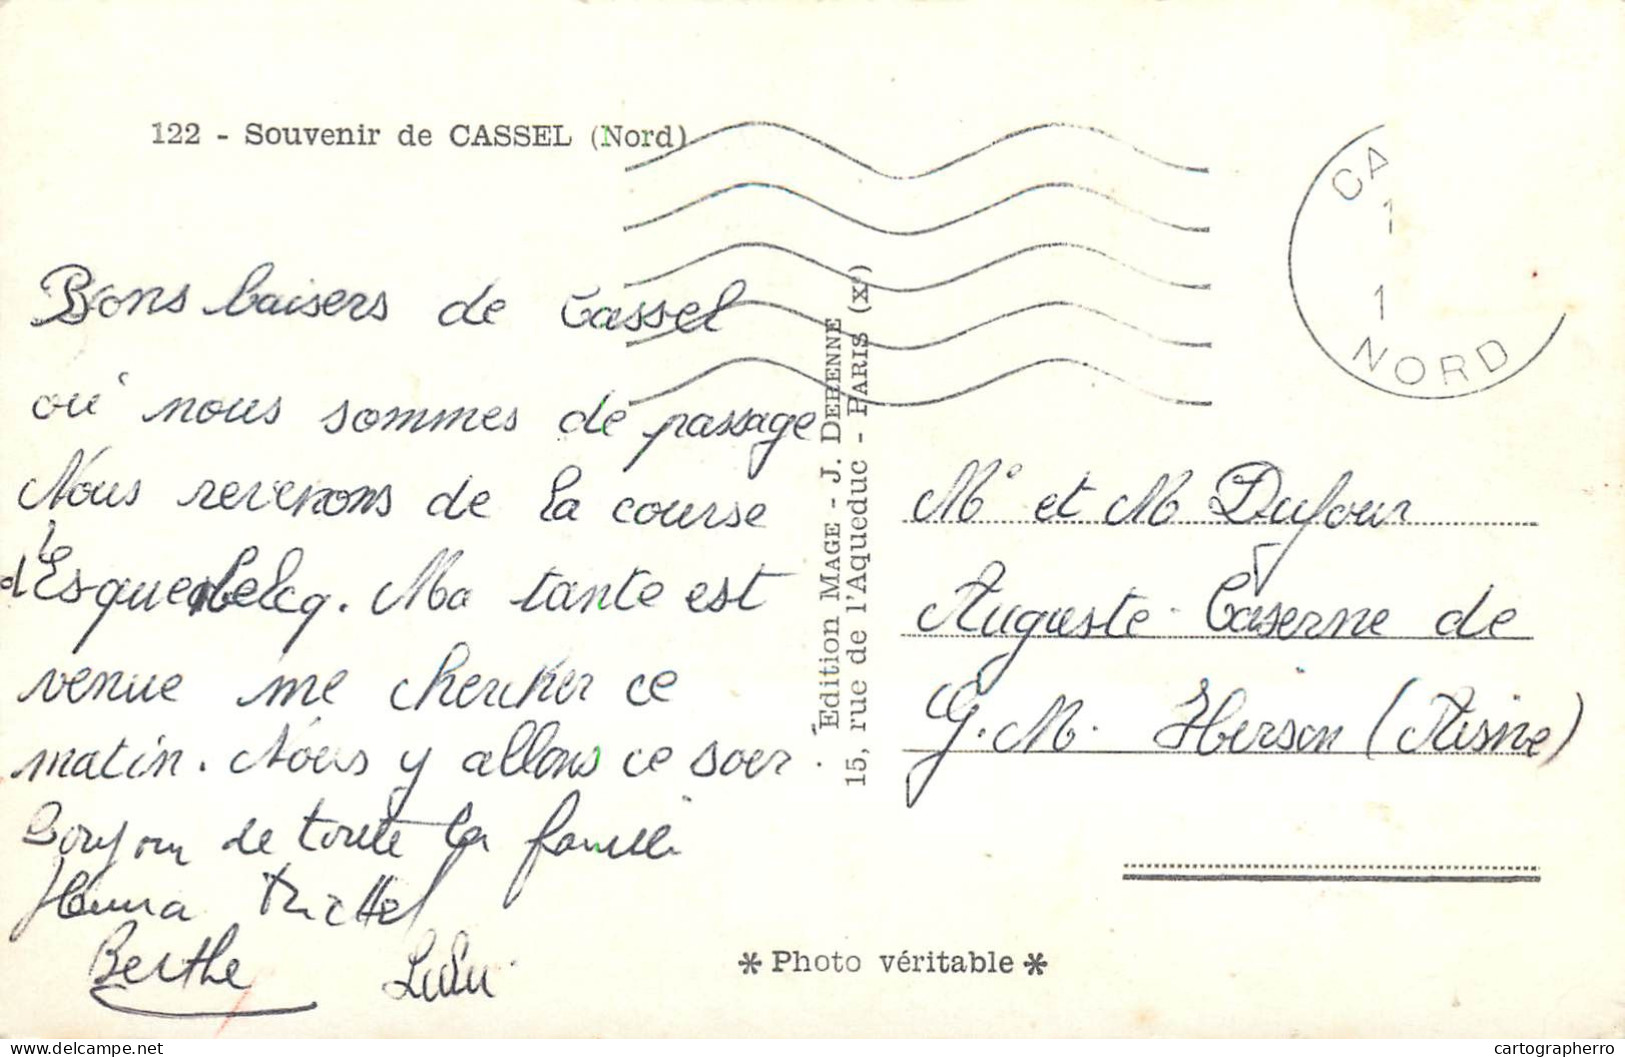 122 - Souvenir de CASSEL (Nord)
CA
1
1
NORD
Bons baisers de Cassel
où nous sommes de passage
Nous revenons de la course
d'Esquelbecq. Ma tante est
venue me chercher ce
matin. Nous y allons ce soir.
Bonjour de toute la famille
Berthe Lulu
Edition MAGE - J. DERENNE
15, rue de l'Aqueduc - PARIS (X)
Mr et M Dufour
Auguste Caserne de
G.M. Hirson (Aisne)
* Photo véritable *
delcampe.net
cartographerro